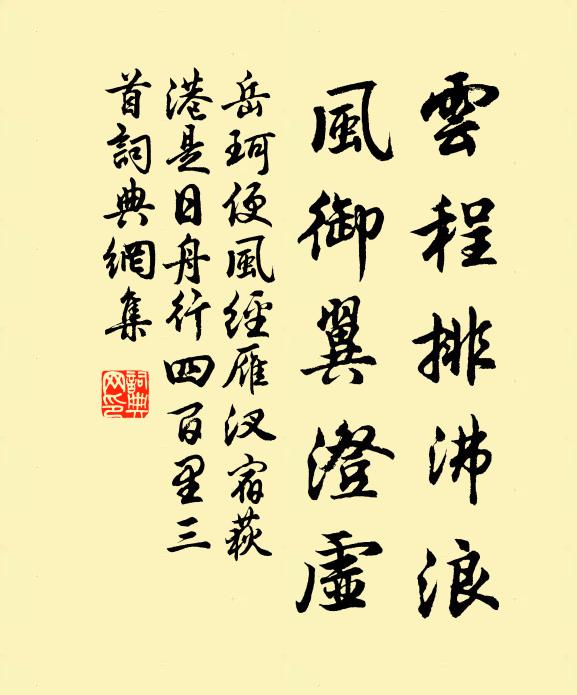 雲程排沸浪
風御翼澄虛
岳珂便風經雁汊宿萩
港是日舟行四百里三
首詞典網集
詞典
网印